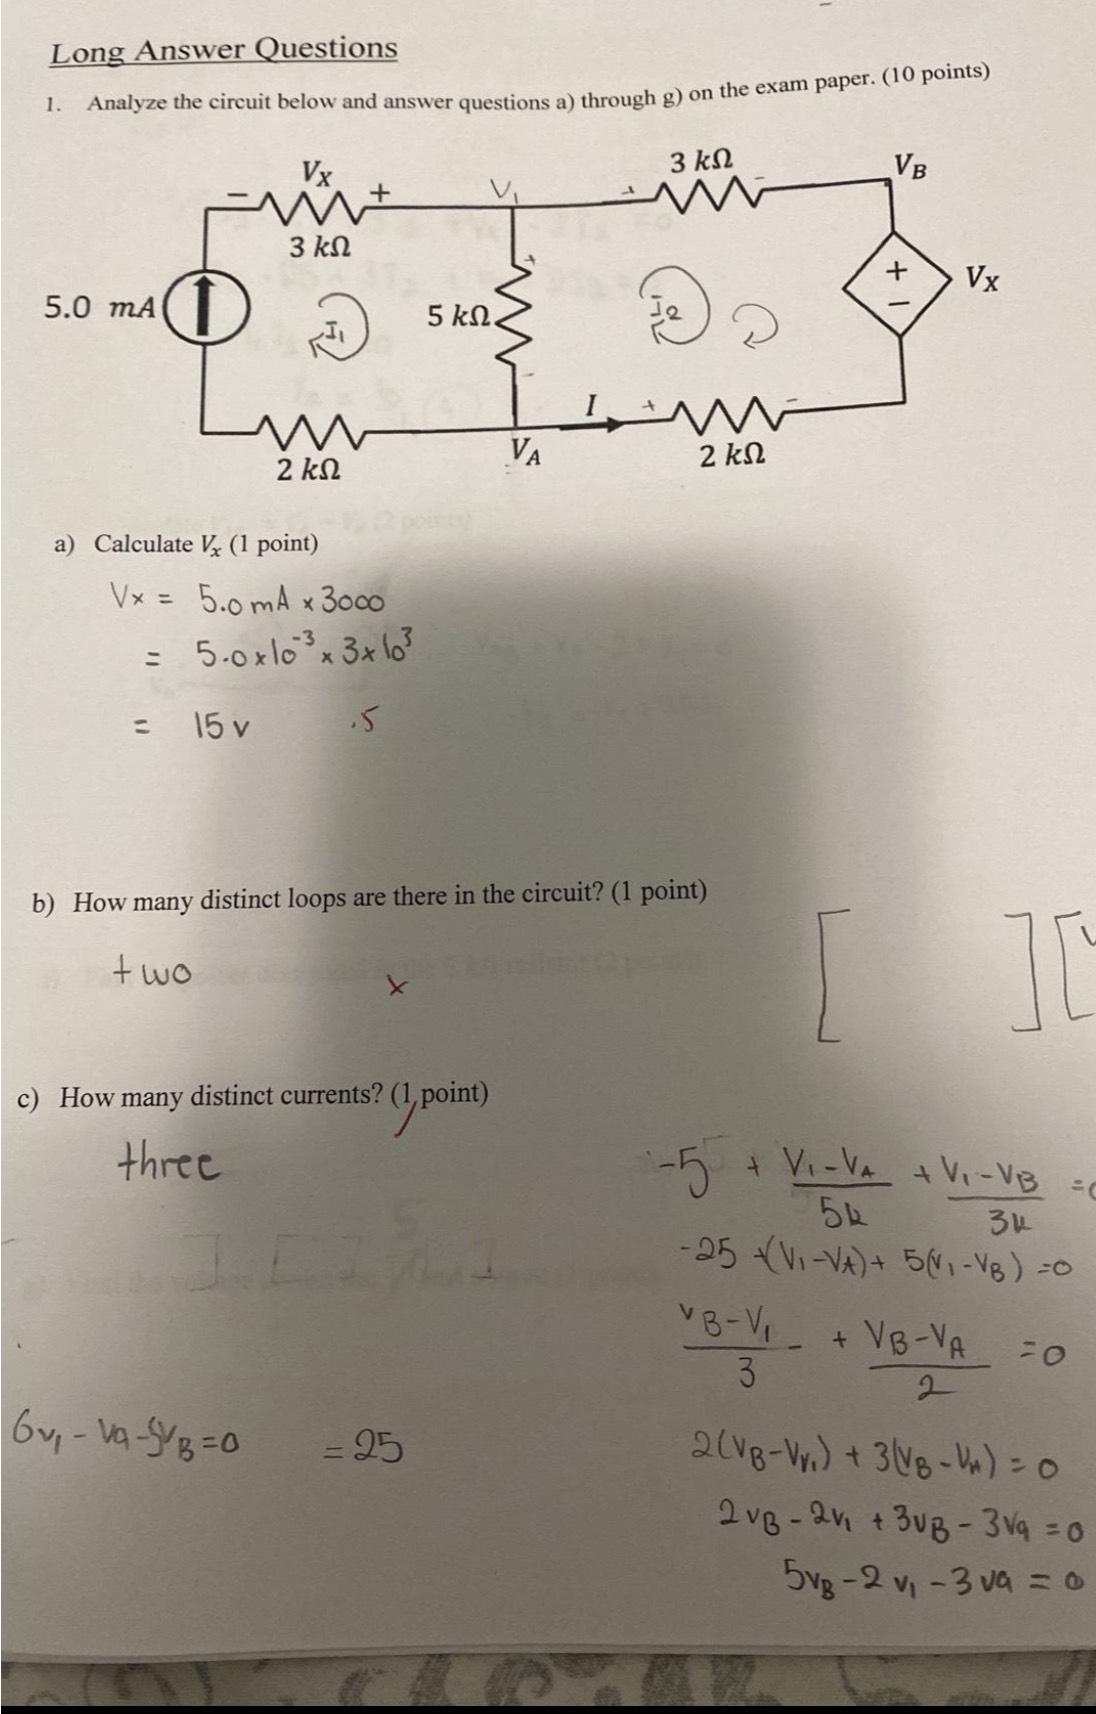 Long Answer Questions
1. Analyze the circuit below and answer questions a) through g) on the exam paper. (10 points)
Vx
3 kΩ
VB
− +
V1
+ −
3 kΩ
+
5.0 mA
I1
5 kΩ
I2
+
−
Vx
−
I
+ −
2 kΩ
VA
2 kΩ
a) Calculate Vx (1 point)
Vx = 5.0 mA × 3000
= 5.0×10^-3 × 3×10^3
= 15 v .5
b) How many distinct loops are there in the circuit? (1 point)
two ×
[ ] [
c) How many distinct currents? (1 point)
three
-5 + V1-VA/5k + V1-VB/3k =
-25 +(V1-VA)+ 5(V1-VB) =0
VB-V1/3 + VB-VA/2 =0
6v1 - Va-5VB=0 = 25
2(VB-VV1) + 3(VB-VA) = 0
2VB - 2V1 + 3VB - 3Va = 0
5VB - 2 V1 - 3 Va = 0